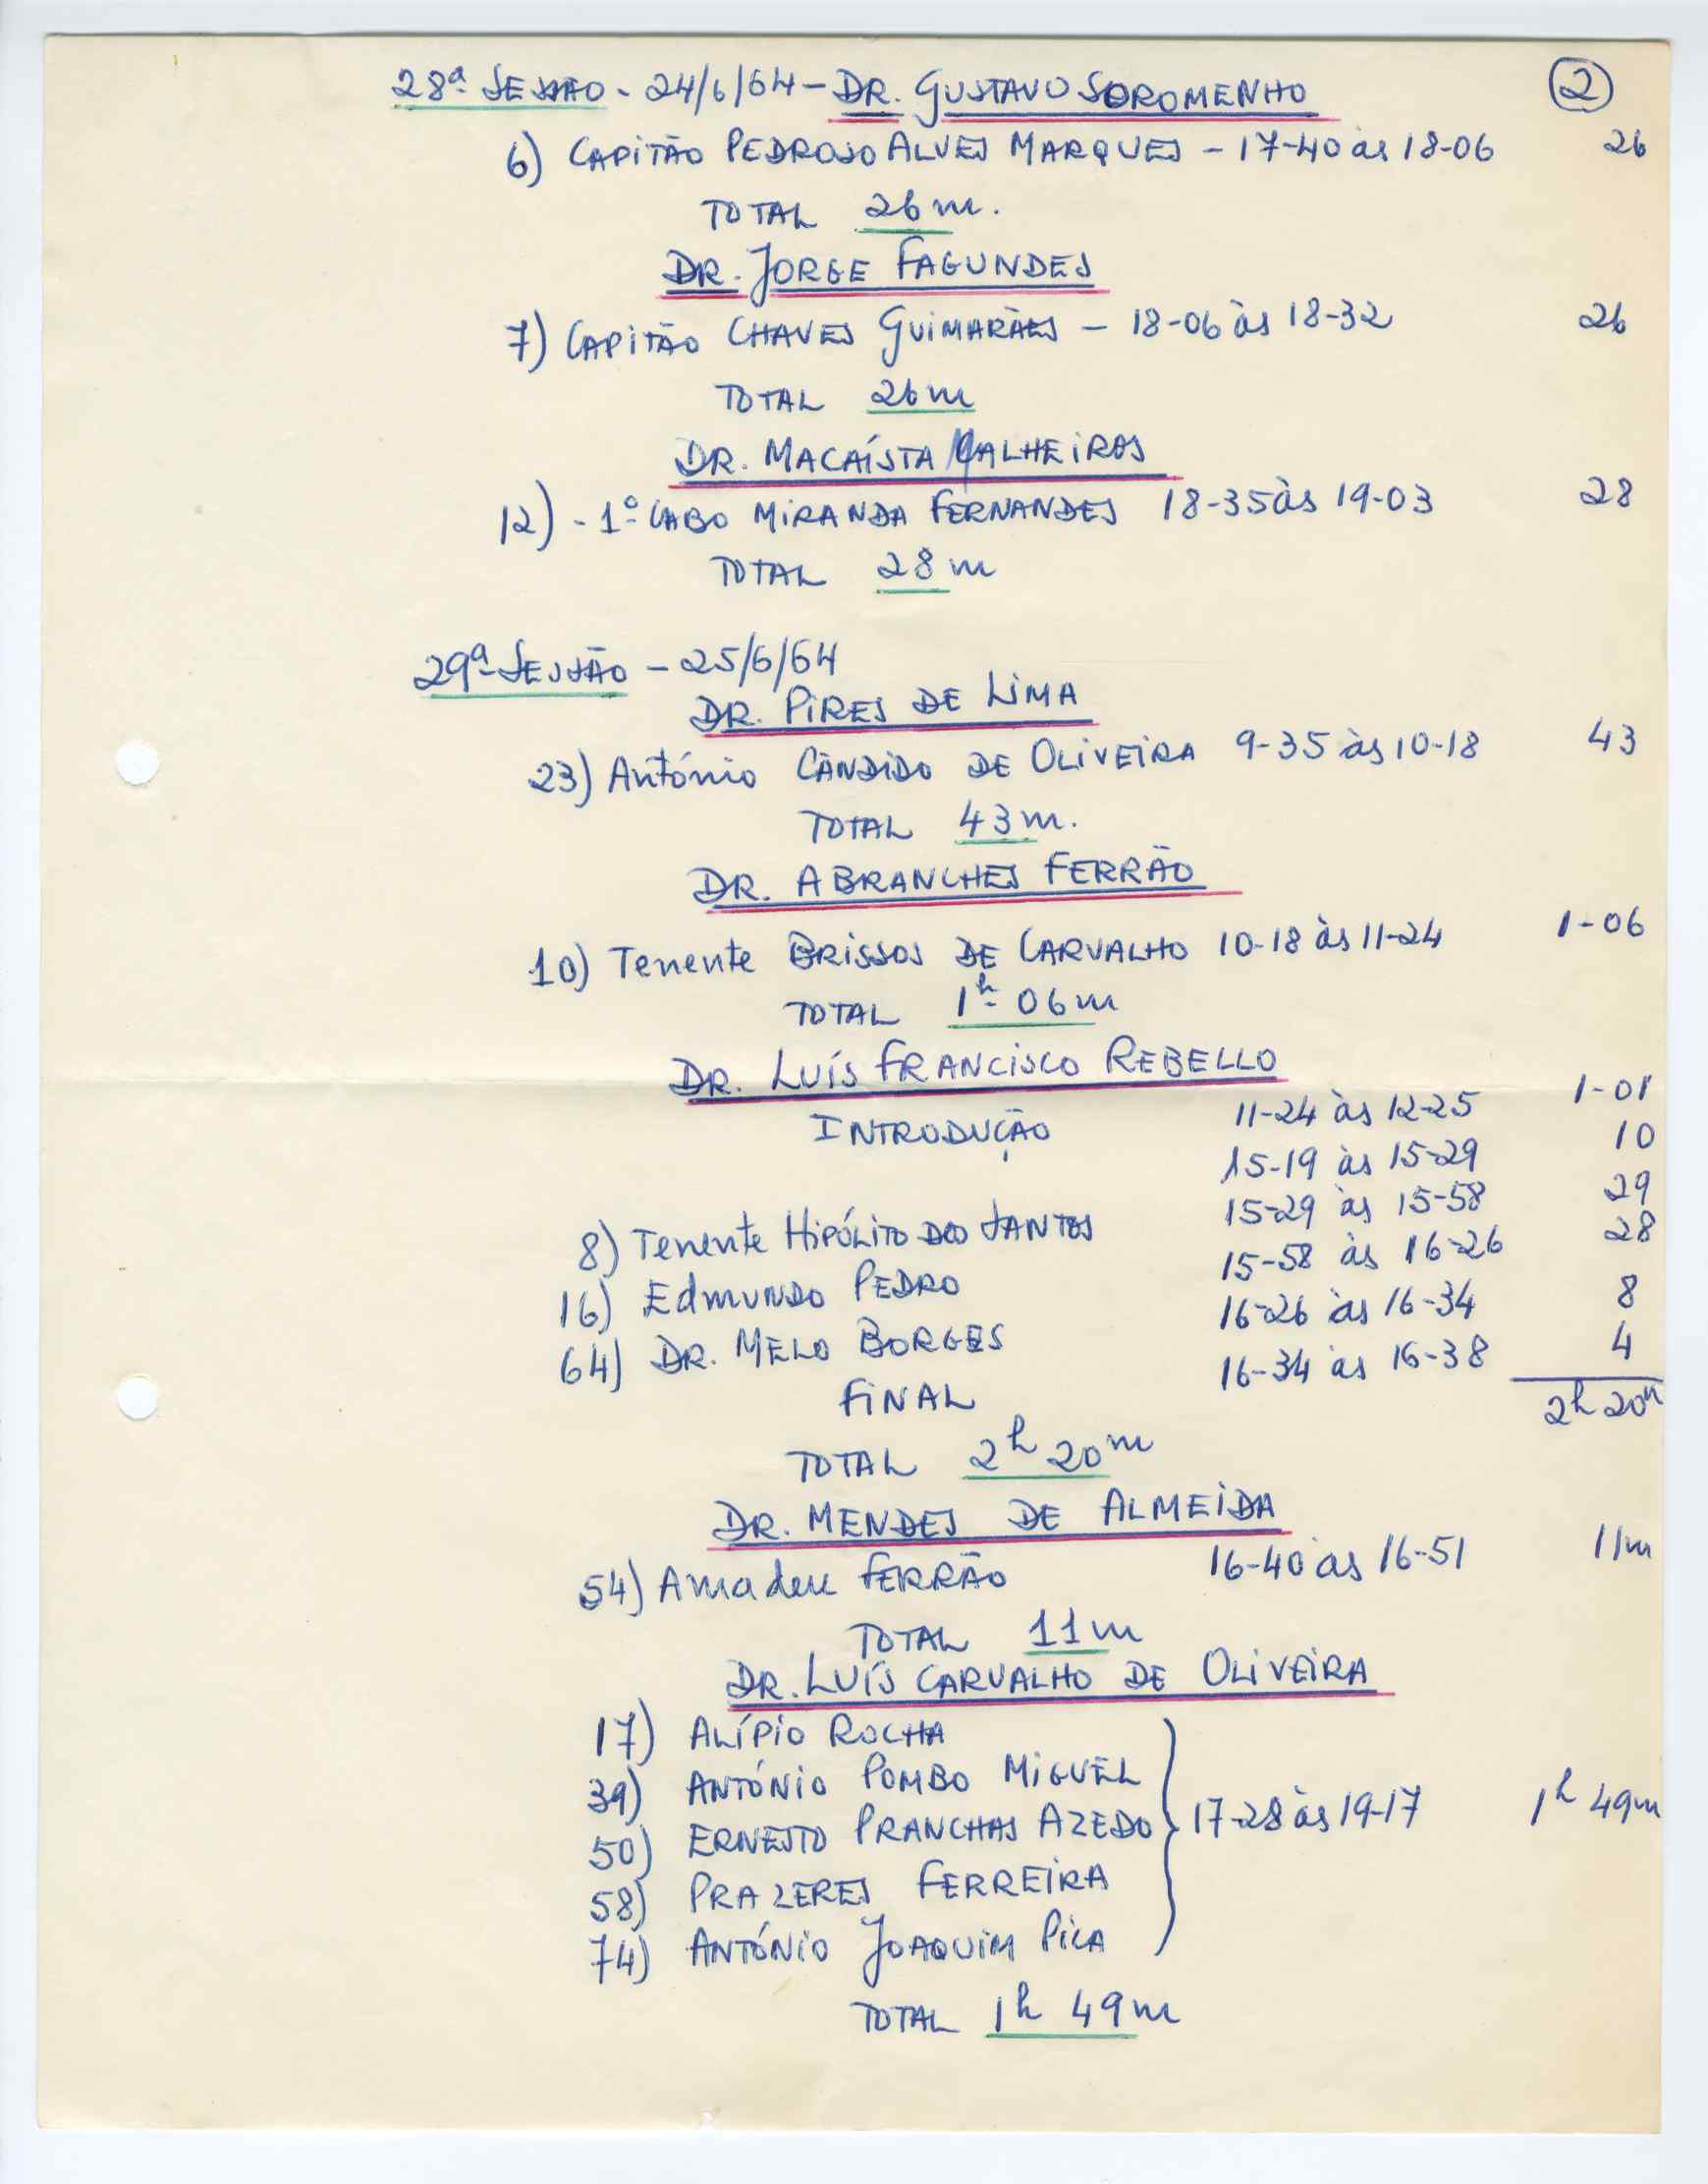 28ª SESSÃO - 24/6/64 - DR. GUSTAVO SOROMENHO
2
6) CAPITÃO PEDROSO ALVES MARQUES - 17-40 às 18-06 26
TOTAL 26m.
DR. JORGE FAGUNDES
7) CAPITÃO CHAVES GUIMARÃES - 18-06 às 18-32 26
TOTAL 26m
DR. MACAÍSTA MALHEIROS
12) - 1º CABO MIRANDA FERNANDES 18-35 às 19-03 28
TOTAL 28m
29ª SESSÃO - 25/6/64
DR. PIRES DE LIMA
23) António CÂNDIDO DE OLIVEIRA 9-35 às 10-18 43
TOTAL 43m.
DR. ABRANCHES FERRÃO
10) Tenente BRISSOS DE CARVALHO 10-18 às 11-24 1-06
TOTAL 1h 06m
DR. LUÍS FRANCISCO REBELLO
INTRODUÇÃO 11-24 às 12-25 1-01
15-19 às 15-29 10
8) Tenente HIPÓLITO DOS SANTOS 15-29 às 15-58 29
16) Edmundo PEDRO 15-58 às 16-26 28
64) DR. MELO BORGES 16-26 às 16-34 8
FINAL 16-34 às 16-38 4
2h 20m
TOTAL 2h 20m
DR. MENDES DE ALMEIDA
54) Amadeu FERRÃO 16-40 às 16-51 11m
TOTAL 11m
DR. LUÍS CARVALHO DE OLIVEIRA
17) ALÍPIO ROCHA
39) ANTÓNIO POMBO MIGUEL
50) ERNESTO PRANCHAS AZEDO 17-28 às 19-17 1h 49m
58) PRAZERES FERREIRA
74) ANTÓNIO JOAQUIM PICA
TOTAL 1h 49m